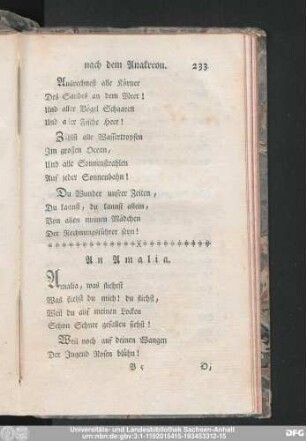 nach dem Anakreon. 233
Aufrechnest alle Körner
Des Sandes an dem Meer!
Und aller Vögel Schaaren
Und aller Fische Heer!
Zählst alle Wassertropfen
Im großen Ocean,
Und alle Sonnenstrahlen
Auf jeder Sonnenbahn!
Du Wunder unsrer Zeiten,
Du kannst, du kannst allein,
Von allen meinen Mädchen
Der Rechnungsführer seyn!
An Amalia.
Amalia, was fliehest
Was fliehst du mich! du fliehst,
Weil du auf meinen Locken
Schon Schnee gefallen siehst!
Weil noch auf deinen Wangen
Der Jugend Rosen blühn!
O,
Universitäts- und Landesbibliothek Sachsen-Anhalt
urn:nbn:de:gbv:3:1-1192015415-193453312-15
DFG